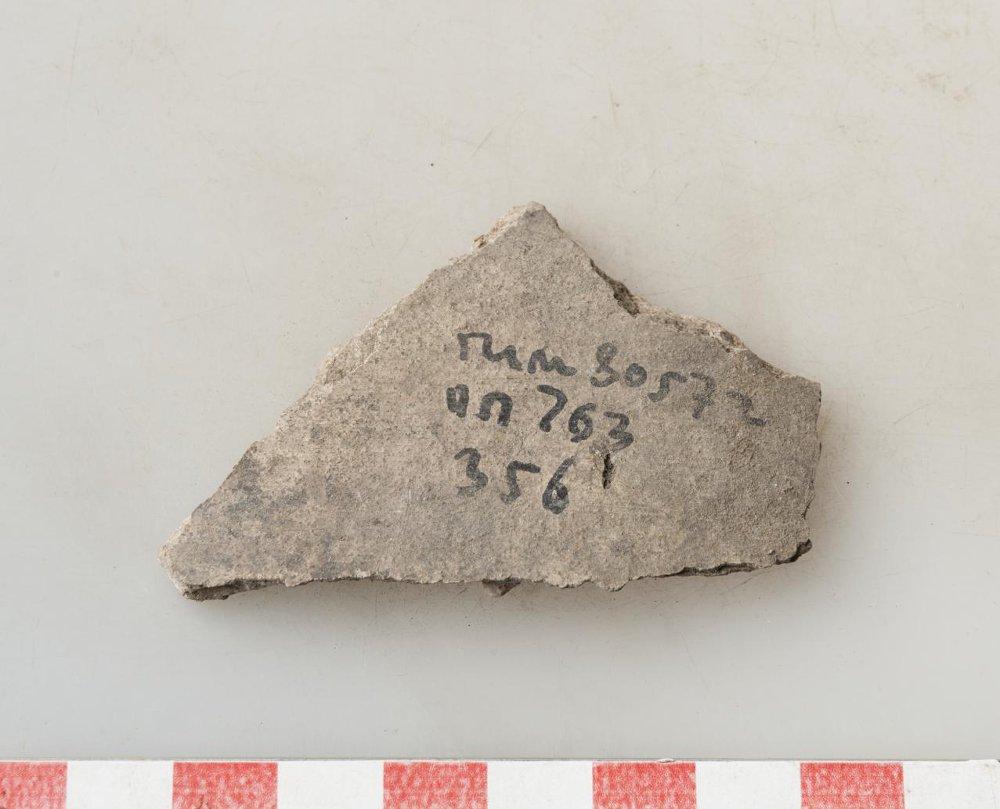 гим 80572
оп 763
356